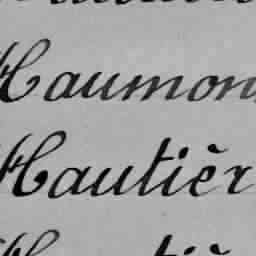 Haumon
Hautièr